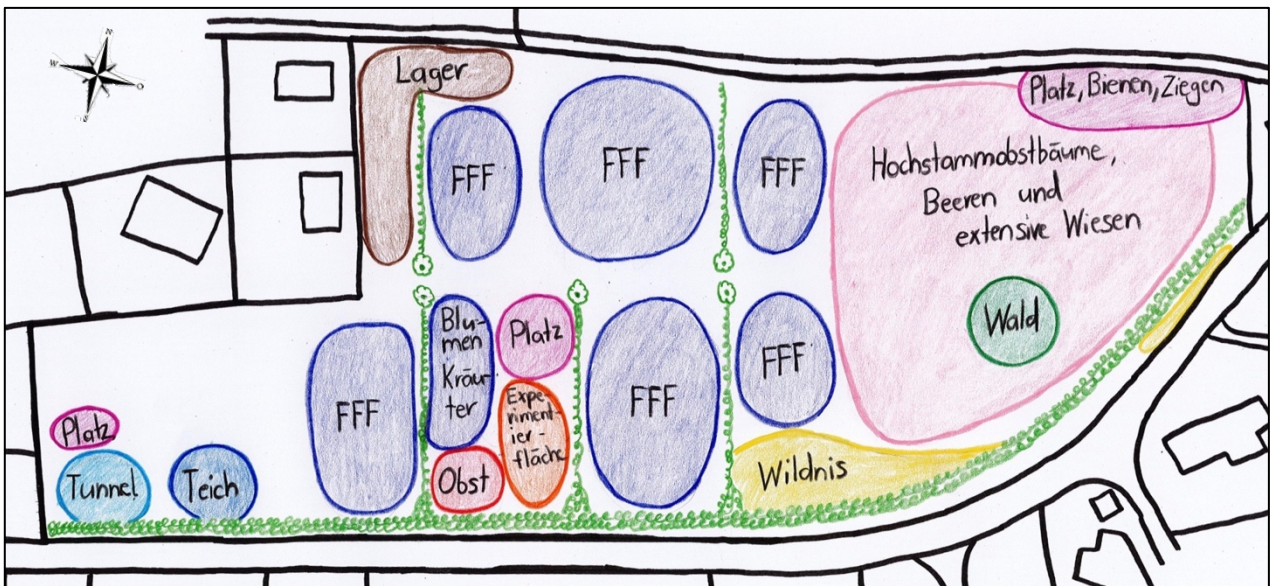 N
W
O
S
Lager
Platz, Bienen, Ziegen
FFF
FFF
FFF
Hochstammobstbäume,
Beeren und
extensive Wiesen
Wald
FFF
Blu-
men
Kräu-
ter
Platz
Expe-
riment-
ier-
fläche
Obst
FFF
FFF
Wildnis
Platz
Tunnel
Teich